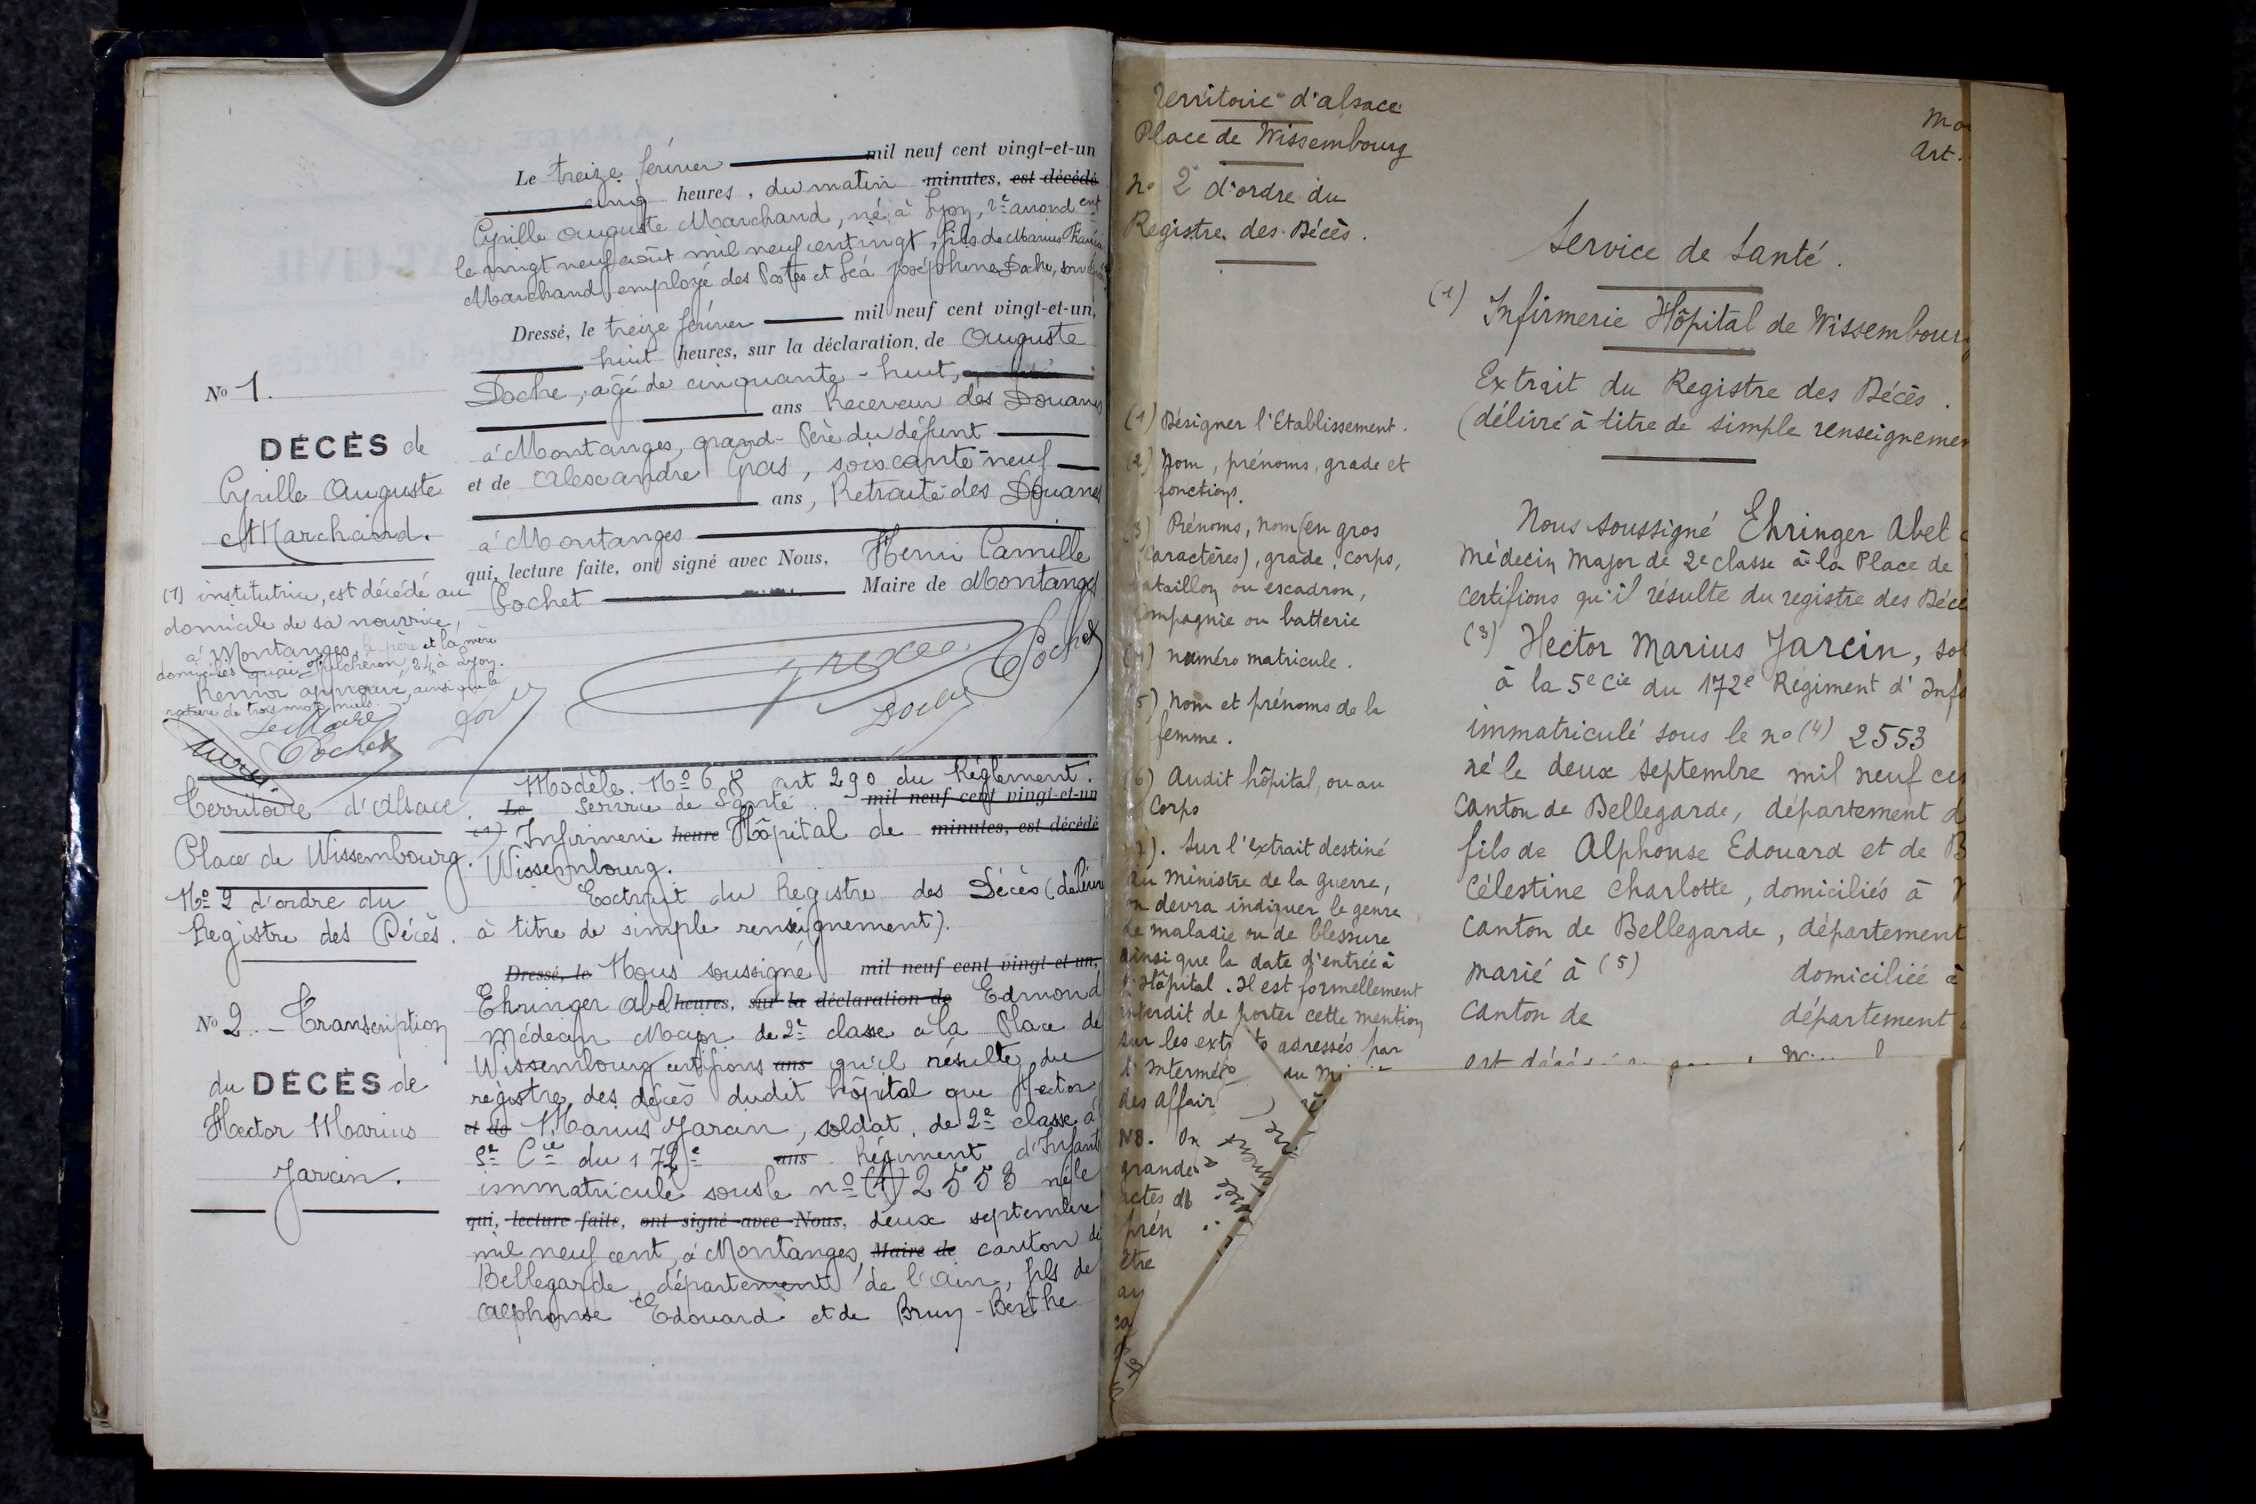 Le treize février mil neuf cent vingt-et-un
cinq heures, du matin minutes, est décédé
Cyrille Auguste Marchand, né à Lyon, 2e arrond ent
le vingt neuf août mil neuf cent vingt, fils de Marius
Marchand, employé des Postes et Léa Joséphine Doche, son
Dressé, le treize février mil neuf cent vingt-et-un,
huit heures, sur la déclaration, de Auguste
Doche, âgé de cinquante-huit,
ans Receveur des Douanes
à Montanges, grand-Père du défunt
et de Alexandre Gras, soixante-neuf
ans, Retraité des Douanes
à Montanges
qui, lecture faite, ont signé avec Nous, Henri Camille
Pochet Maire de Montanges
Pochet
Doche
No 1.
DÉCÈS de
Cyrille Auguste
Marchand.
(1) institutrice, est décédé au
domicile de sa nourrice,
à Montanges, le père et la mère
domiciliés quai 24 à Lyon.
Renvoi approuvé, ainsi que la
rature de trois mots nuls.
Le Maire
Pochet
Territoire d'Alsace.
Place de Wissembourg.
No 2 d'ordre du
Registre des Décès.
No 2. - Transcription
du DÉCÈS de
Hector Marius
Jarcin.
Modèle. No 68 art 290 du Réglement.
Le Service de Santé. mil neuf cent vingt-et-un
(1) Infirmerie heure Hôpital de minutes, est décédé
Wissembourg.
Extrait du Registre des Décès (délivré
à titre de simple renseignement).
Dressé, le Nous soussigné mil neuf cent vingt-et-un,
Ehringer Abel heures, sur la déclaration de Edmond
Médecin Major de 2e classe à la Place de
Wissembourg certifions ans qu'il résulte du
registre des décès dudit hôpital que Hector
et de Marius Jarcin, soldat de 2e classe à
5e Cie du 172e ans Régiment d'Infant
immatriculé sous le no (4) 2553 né le
qui, lecture faite, ont signé avec Nous, deux septembre
mil neuf cent, à Montanges, Maire de canton de
Bellegarde, département de l'Ain, fils de
Alphonse Edouard et de Brun-Berthe
Territoire d'Alsace
Place de Wissembourg
no 2 d'ordre du
Registre des Décès.
(1) Désigner l'Etablissement.
(2) Nom, prénoms, grade et
fonctions.
(3) Prénoms, nom (en gros
caractères), grade, corps,
bataillon ou escadron,
compagnie ou batterie
(4) numéro matricule.
(5) Nom et prénoms de la
femme.
(6) Audit hôpital, ou au
Corps
(7). Sur l'extrait destiné
au Ministre de la guerre,
on devra indiquer le genre
de maladie ou de blessure
ainsi que la date d'entrée à
l'Hôpital. Il est formellement
interdit de porter cette mention
sur les ext to adressés par
l'interméd du Mi
des Affair
NB. On
grande
actes d
prén
être
au
Mo
Art.
Service de Santé.
(1) Infirmerie Hôpital de Wissembourg
Extrait du Registre des Décès.
(délivré à titre de simple renseignemen
Nous soussigné Ehringer Abel
Médecin Major de 2e classe à la Place de
certifions qu'il résulte du registre des Décè
(3) Hector Marius Jarcin, sol
à la 5e Cie du 172e Régiment d'Infa
immatriculé sous le no (4) 2553
né le deux septembre mil neuf cen
canton de Bellegarde, département d
fils de Alphonse Edouard et de B
Célestine Charlotte, domiciliés à
canton de Bellegarde, département
marié à (5) domiciliée à
canton de département